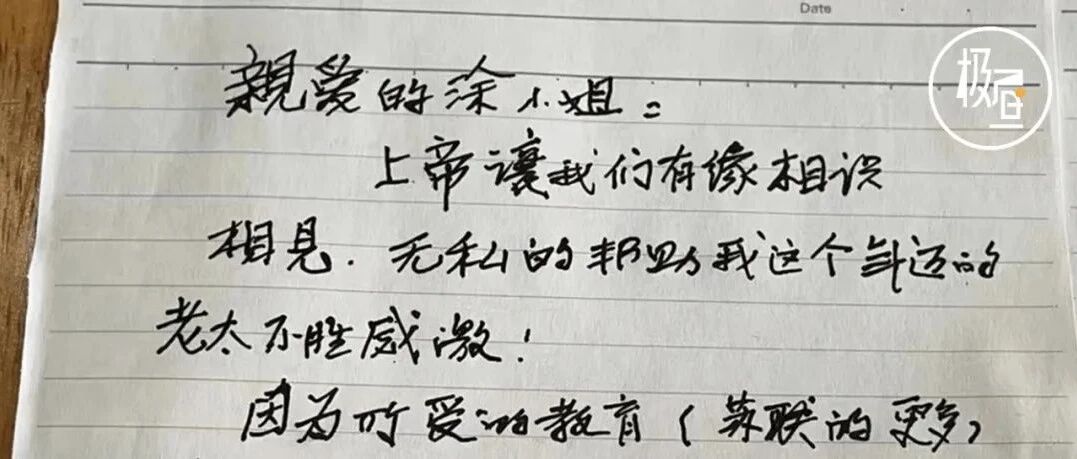 Date
极昼
親爱的涂小姐：
上帝讓我们有缘相识
相见．无私的邦助我这个年迈的
老太不胜感激！
因为所受的教育（苏联的更多）